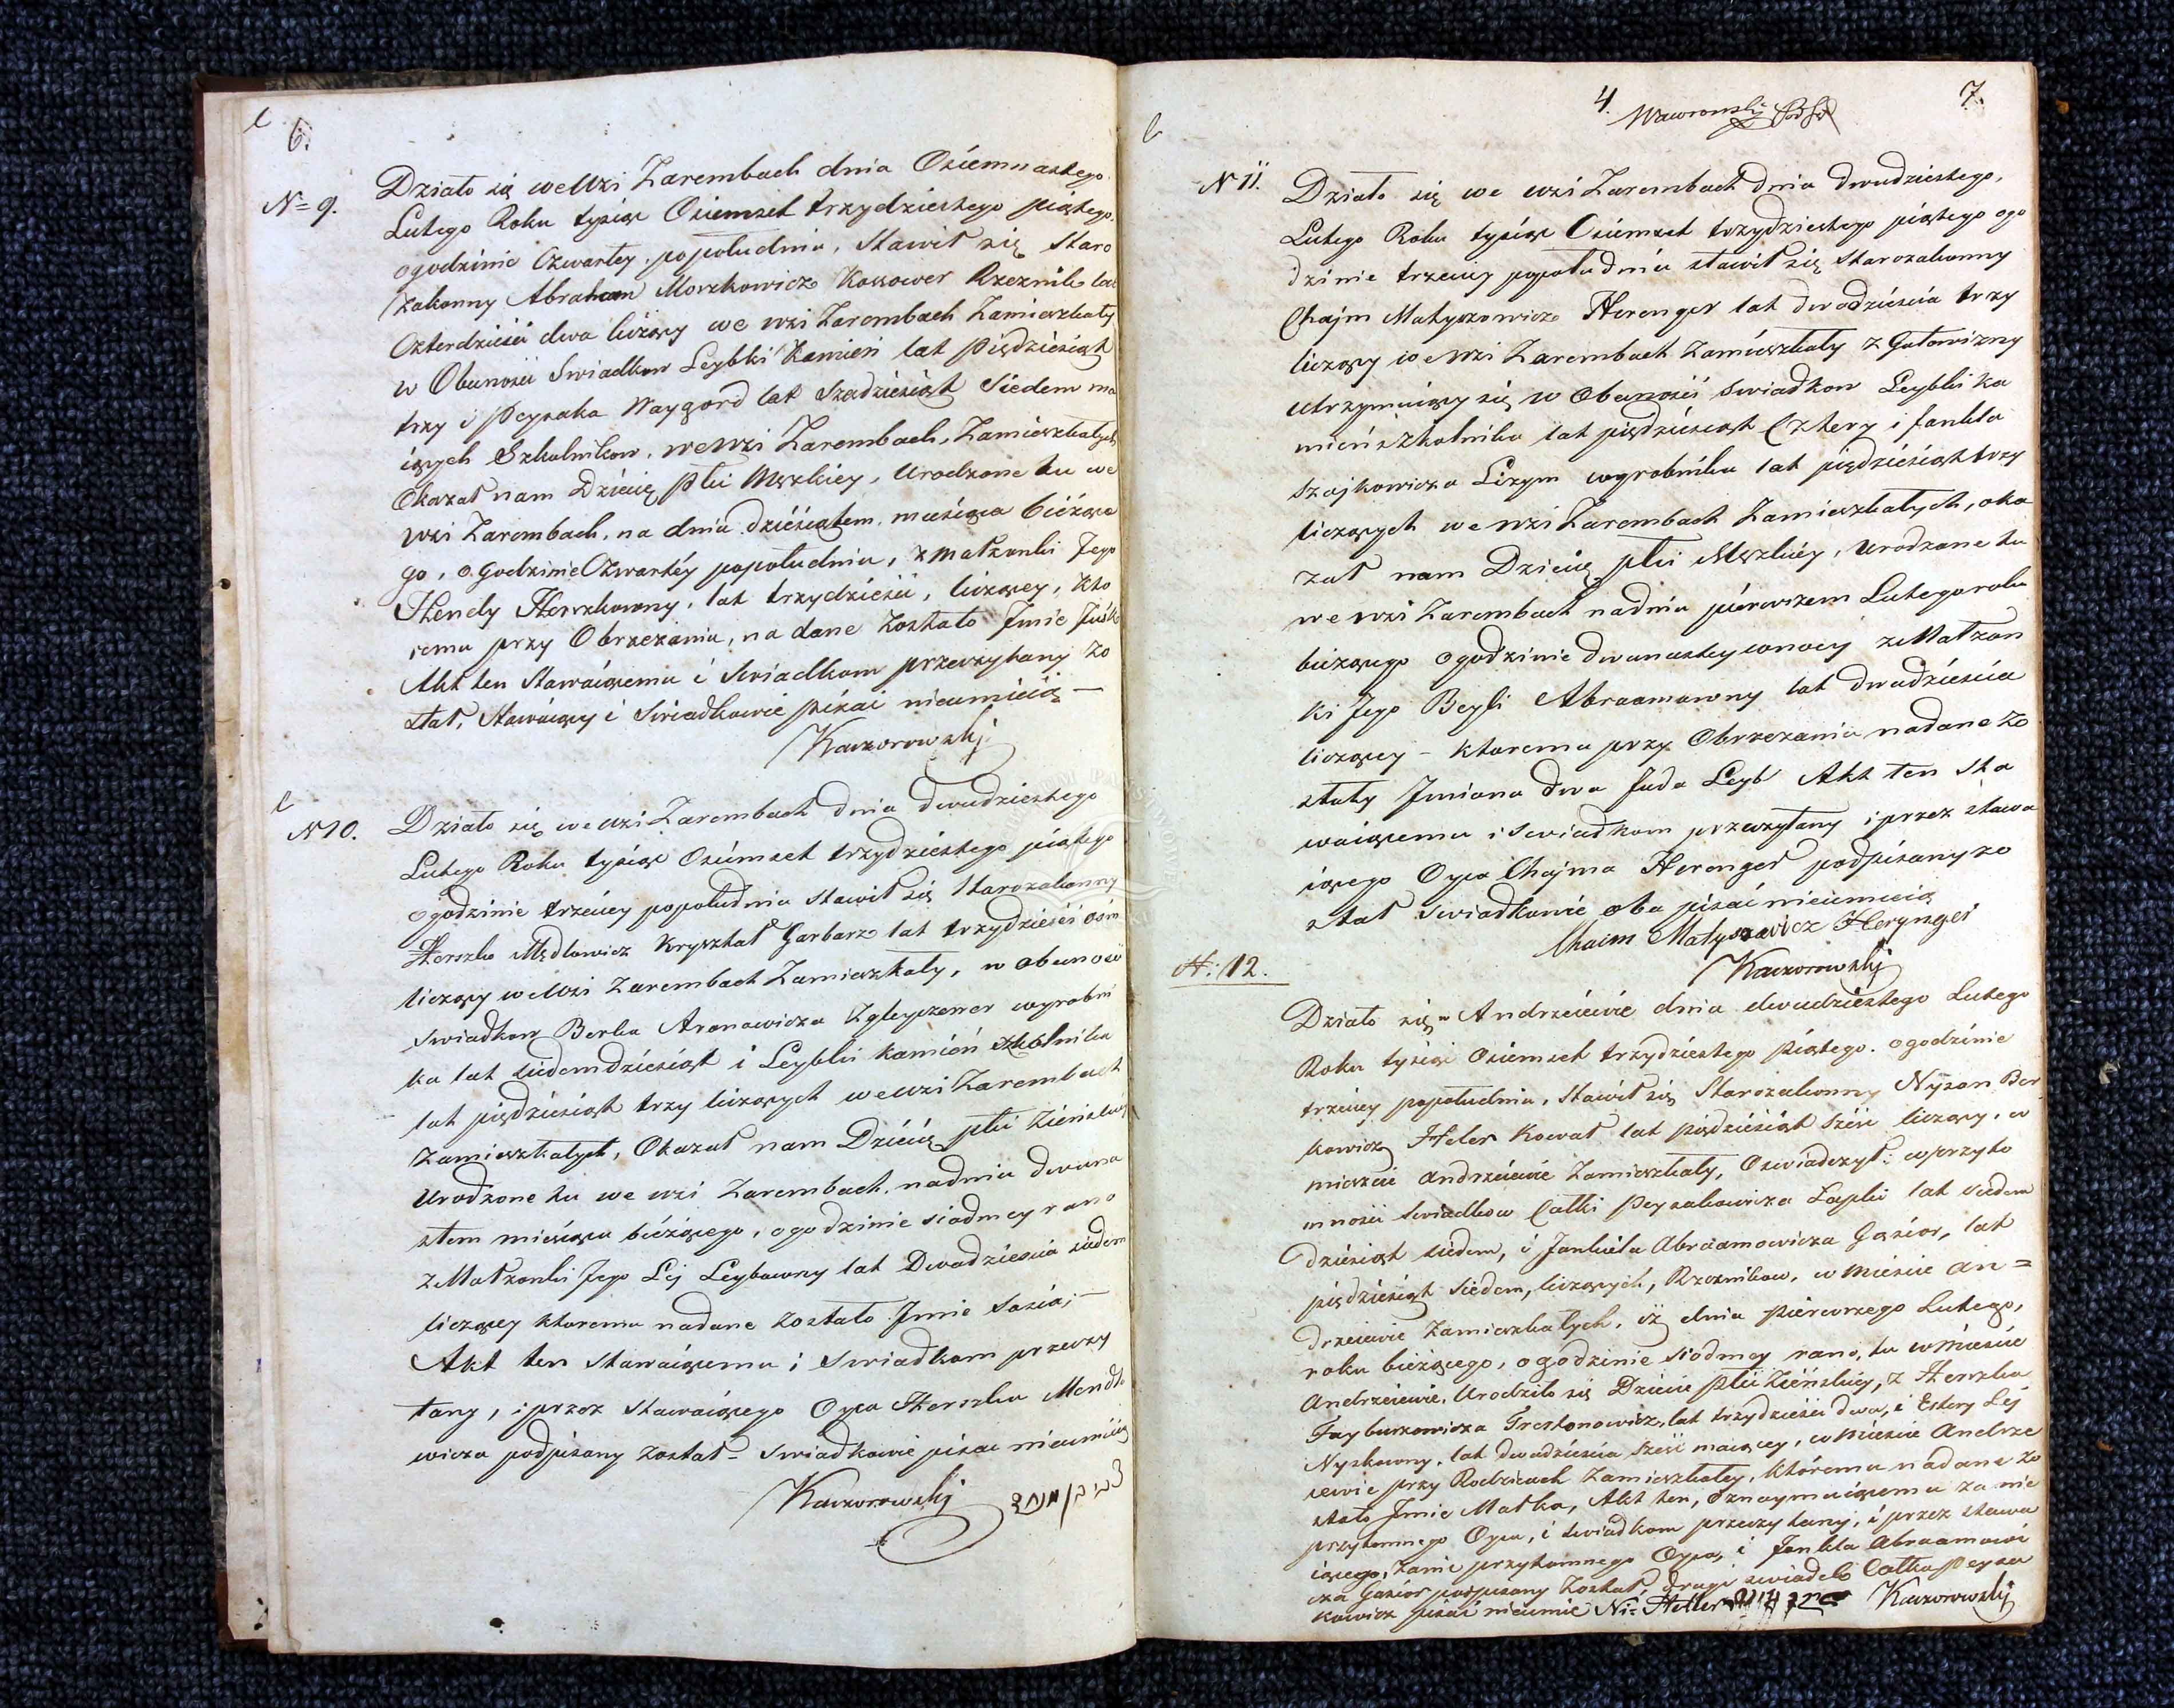 6.
N= 9.
Działo się we Wsi Zarembach dnia Osiemnastego
Lutego Roku tysiąc Osiemset trzydziestego piątego
o godzinie Czwartey popołudniu, Stawił się Staro
zakonny Abraham Moszkowicz Kossower Rzeznik lat
Czterdzieści dwa liczący we wsi Zarembach Zamieszkały
w Obecności Swiadkow Leybki Kamień lat Pięćdziesiąt
trzy i Peysaka Waygord lat Sześdziesiąt Siedem ma
iących Szkolnikow, we Wsi Zarembach, Zamieszkałych
Okazał nam Dziecię Płci Męzkiey, Urodzone tu we
wsi Zarembach, na dniu dziesiątem miesiąca bieżące
go, o Godzinie Czwartéy popołudniu, z małzonki Jego
Hendly Herszkowny, lat trzydzieści, liczącey, Kto
remu przy Obrzezaniu, na dane Zostało Jmie
Akt ten Stawaiącemu i Swiadkom przeczytany Zo
stał, Stawaiący i Swiadkowie pisać nieumieią –
Kaczorowski
N 10.
Działo się we Wsi Zarembach dnia dwudziestego
Lutego Roku tysiąc Osiemset trzydziestego piątego
o godzinie trzeciey popołudniu stawił się Starozakonny
Herszko Mędlowicz Kryształ Garbarz lat trzydzieści ośm
liczący we Wsi Zarembach Zamieszkały, w obecności
Swiadkow Berka Aronowicza Zgleyszewer wyrobni
ka lat siedemdziesiąt i Leybki Kamień szkolnika
lat pięćdziesiąt trzy liczących we wsi Zarembach
Zamieszkałych, Okazał nam Dziécię płci Zieńskiej
Urodzone tu we wsi Zarembach, na dniu dwuna
stem miesiąca bieżącego, o godzinie siodmey rano
z Małzonki Jego Lej Leybowny lat Dwadziescia siedem
liczącey ktoremu nadane zostało Jmie Sosia; –
Akt ten stawaiącemu i Swiadkom przeczy
tany, i przez stawaiącego Oyca Herszka Mendlo
wicza podpisany został – Swiadkowie pisac nieumieią
Kaczorowski
4.
7.
N 11.
Działo się we wsi Zarembach dnia dwudziestego,
Lutego Roku tysiąc Osiemset trzydziestego piątego ogo
dzinie trzeciey popołudniu stawił się starozakonny
Chajm Matyszowicz Herenger lat dwadzieścia trzy
liczący we Wsi Zarembach Zamieszkały z Gotowizny
utrzymuiący się w Obecności swiadkow Leybki Ka
mień szkolnika lat pięćdziesiąt Cztery i Jankla
Szajkowicza Lizym wyrobnika lat pięćdziesiąt trzy
liczących we wsi Zarembach Zamieszkałych, oka
zał nam Dziecię płci Męzkiéy, Urodzone tu
we wsi Zarembach na dniu pierwszem Lutego roku
bieżącego o godzinie dwunastey wnocy z Małzon
ki Jego Beyli Abraamowny lat dwudzieścia
liczącey – ktoremu przy Obrzezaniu nadane zo
stały Jmiona dwa Juda Leyb Akt ten sta
waiącemu i swiadkom przeczytany i przez stawa
iącego Oyca Chajma Herenger podpisany zo
stał Swiadkowie oba pisać nieumieią
Chaim Matysowicz Herynger
Kaczorowski
N: 12.
Działo się w Andrzeiewie dnia dwudziestego Lutego
Roku tysiąc Osiemset trzydziestego Piątego. o godzinie
trzeciey popołudniu, Stawił się Starozakonny Nyson Ber
kowicz Heler Kowal lat pięćdziesiąt Sześć liczący, w
mieście Andrzeiewie Zamieszkały, Oswiadczył: w przyto
mności Swiadkow Calki Peysakowicza Zapki lat siedem
dziesiąt siedem, i Jankiela Abraamowicza Gąsior, lat
pięćdziesiąt Siedem, liczących, Rzeznikow, w Mieście An=
drzeiewie Zamieszkałych, iż dnia Pierwszego Lutego,
roku bieżącego, o godzinie siodmey rano, tu w Mieście
Andrzeiewie, Urodziło się Dziecie Płci Zieńskiey, z Herszka
Faybuszowicza Trestonowicz, lat trzydzieści dwa, i Estery Lej
Nyskowny, lat dwudziescia sześć maiącey, w mieście Andrze
iewie przy Rodzicach Zamieszkałey, któremu nadane Zo
stało Jmie Małka, Akt ten, Oznaymuiącemu za nie
przytomnego Oyca, i swiadkom przeczytany, i przez stawa
iącego, Zanie przytomnego Oyca, i Jankla Abraamowi
cza Gąsior podpisany Został, drugi swiadek Calka Peysa
kowicz pisać nieumie Ni= Heller Kaczorowski